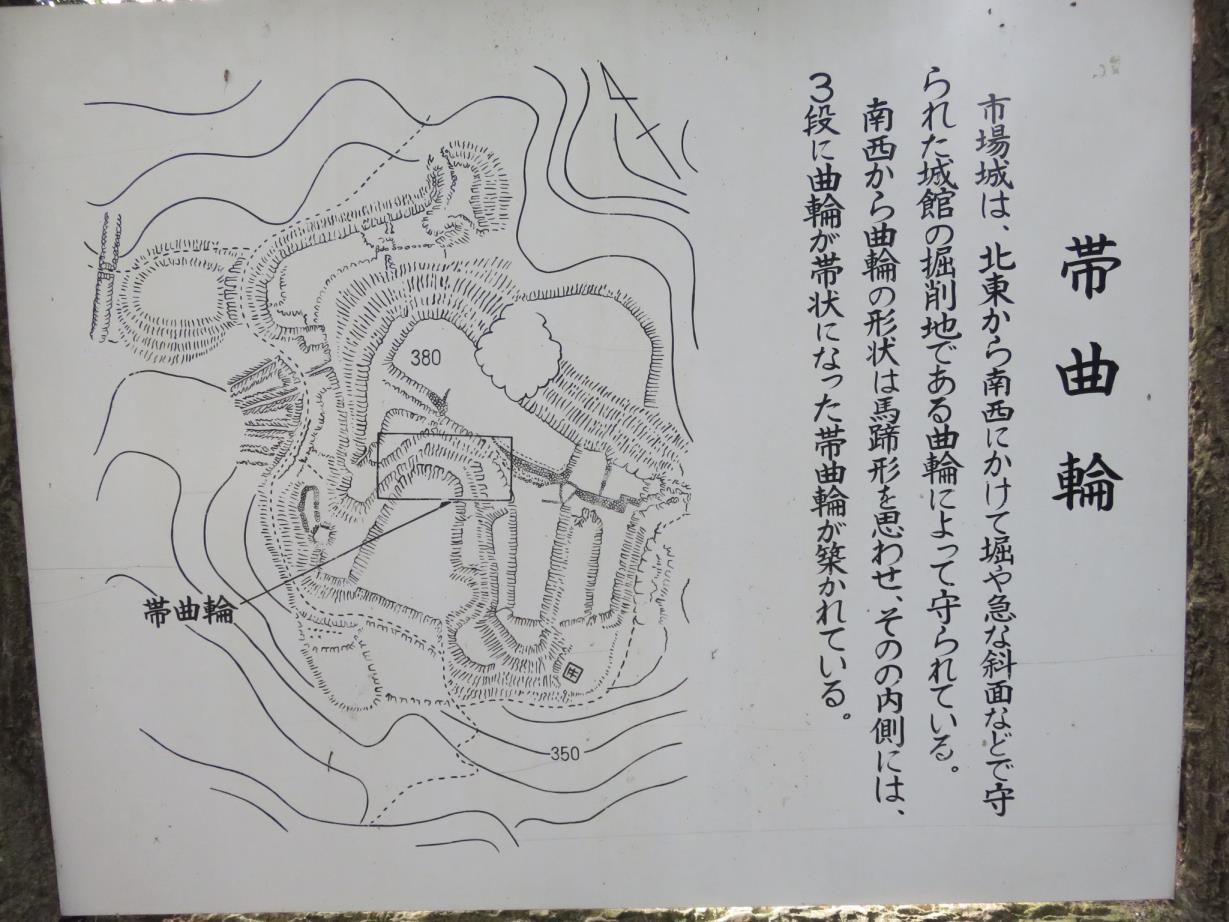 帯曲輪
市場城は、北東から南西にかけて堀や急な斜面などで守
られた城館の掘削地である曲輪によって守られている。
南西から曲輪の形状は馬蹄形を思わせ、そのの内側には、
3段に曲輪が帯状になった帯曲輪が築かれている。
380
帯曲輪
350